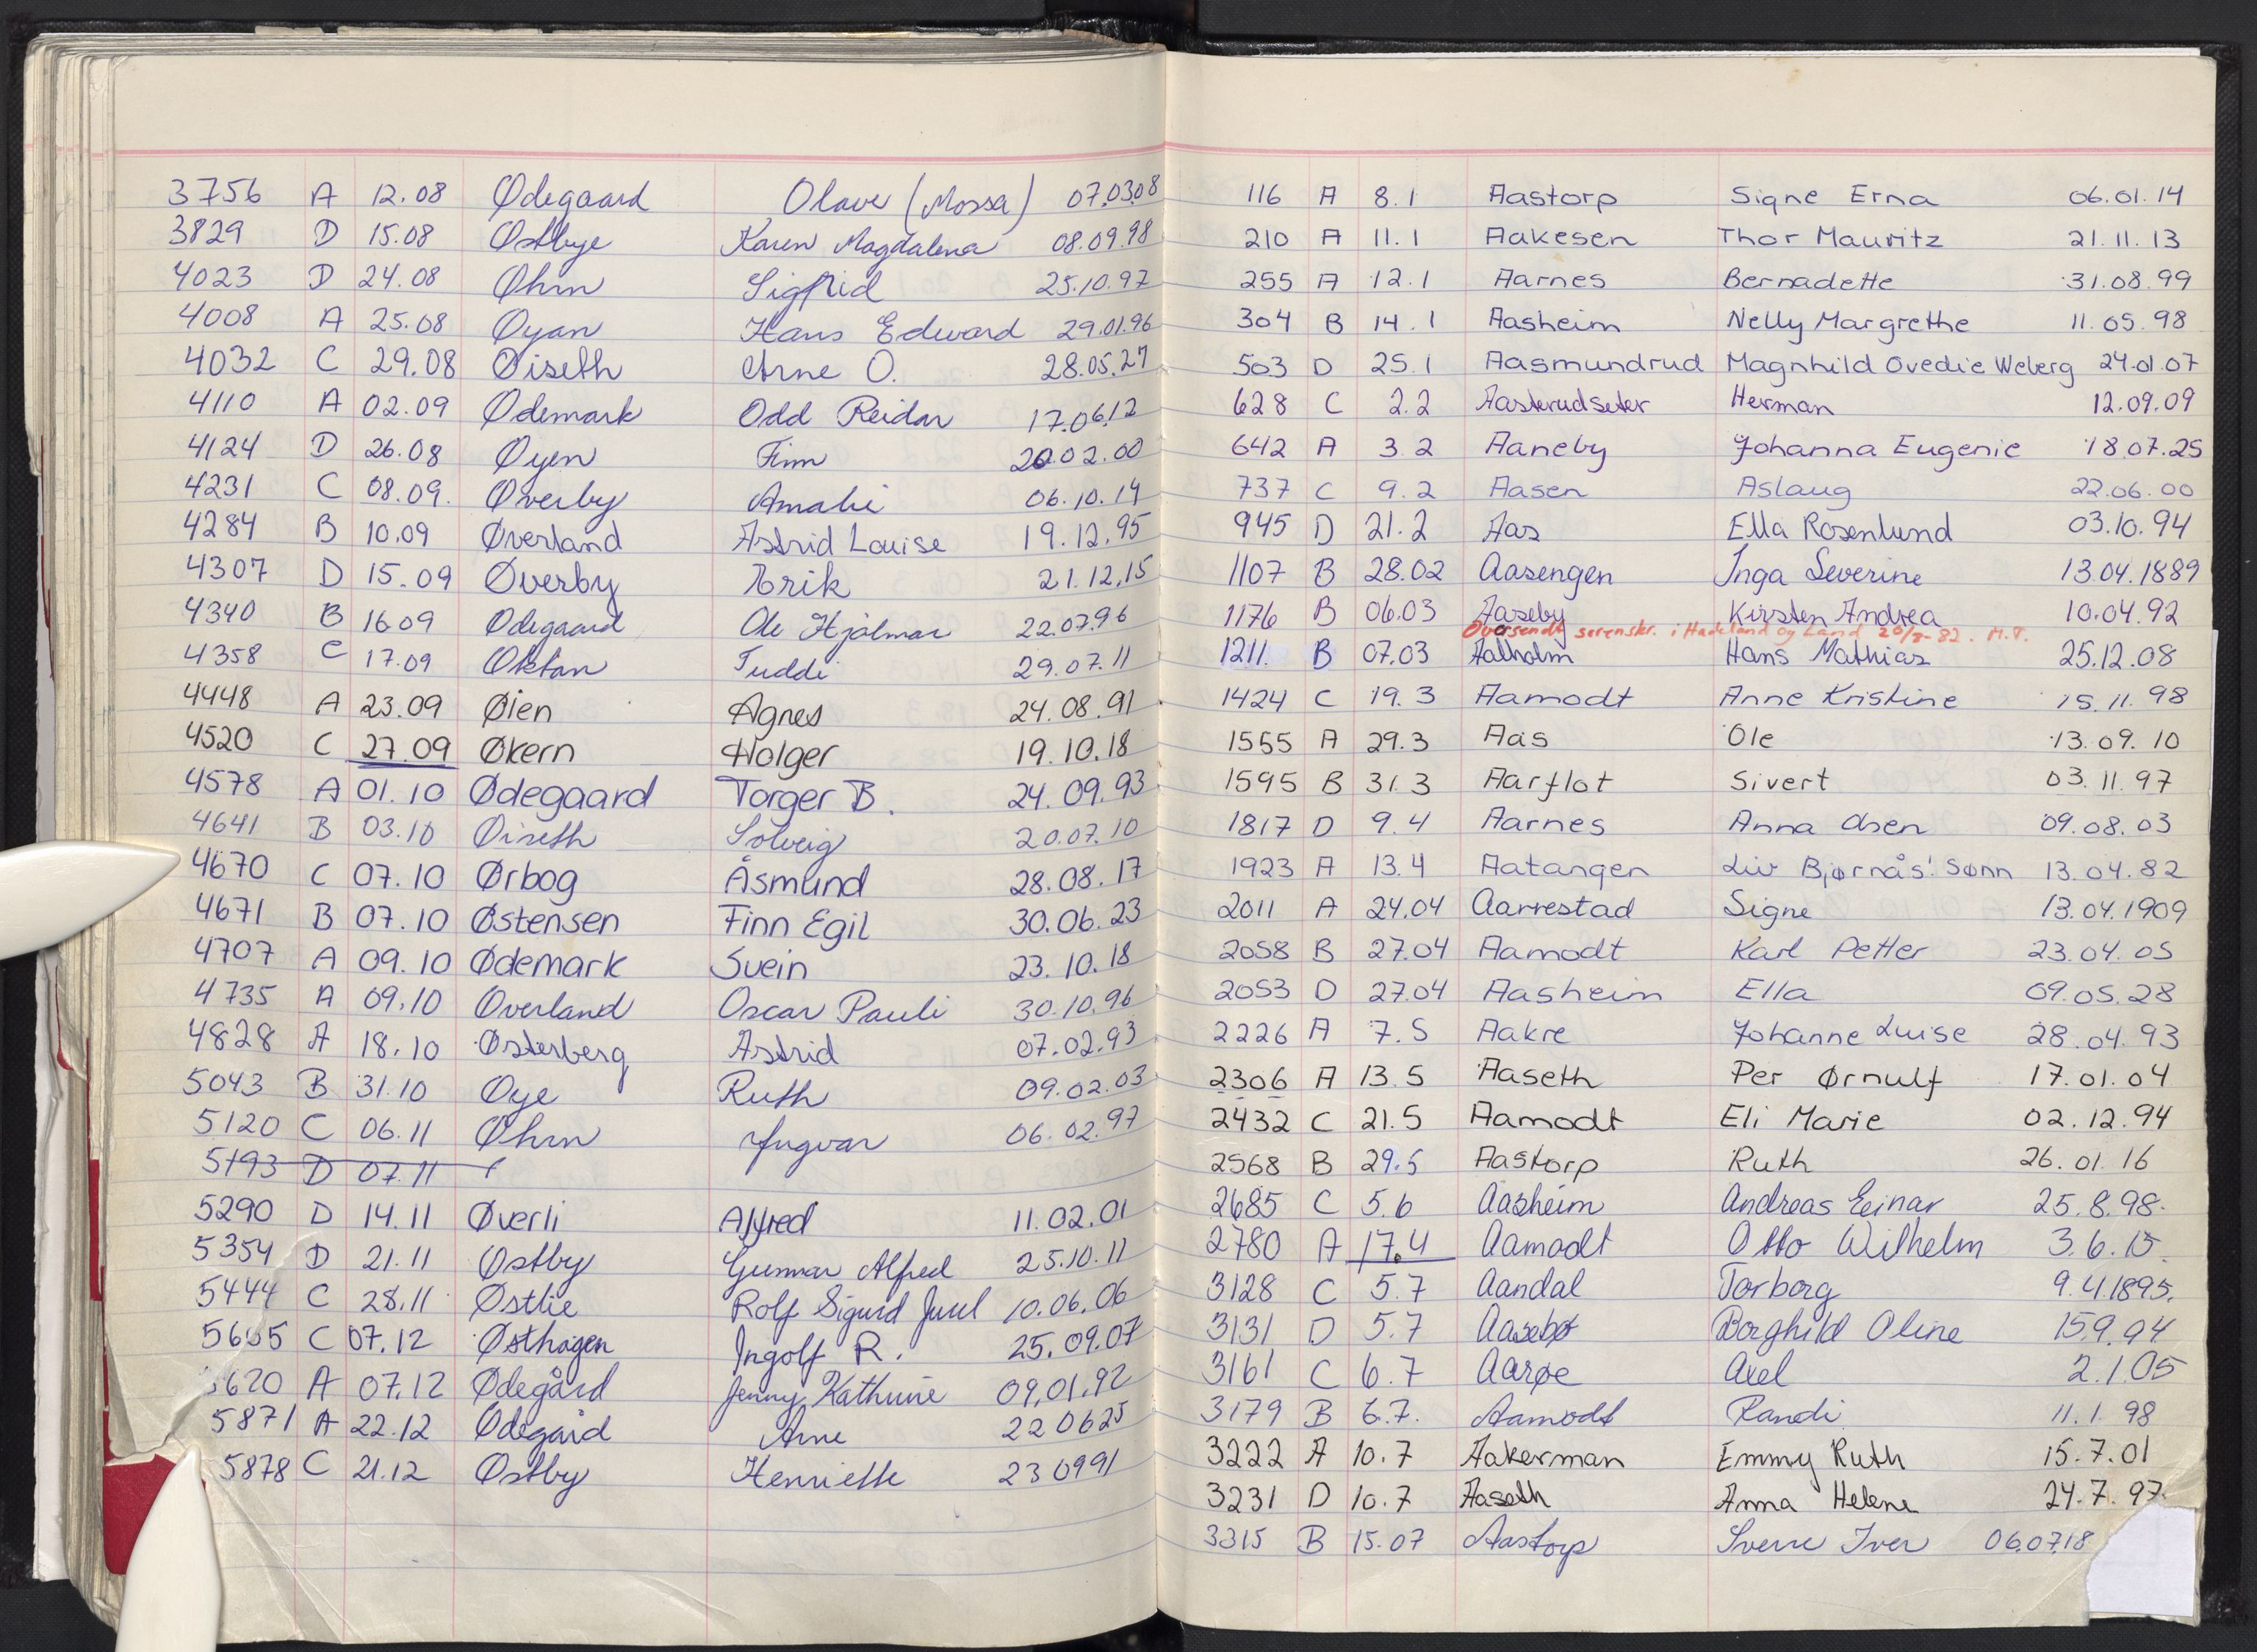 3756 A 12.08 Ødegaard Olave (Mossa) 07.03.08
3829 D 15.08 Østbye Karen Magdalena 08.09.98
4023 D 24.08 Øhrn Sigfrid 25.10.97
4008 A 25.08 Øyan Hans Edward 29.01.96
4032 C 29.08 Øiseth Arne O. 28.05.27
4110 A 02.09 Ødemark Odd Reidar 17.06.12
4124 D 26.08 Øyen Finn 20.02.00
4231 C 08.09. Øverby Amalie 06.10.14
4284 B 10.09 Øverland Astrid Louise 19.12.95
4307 D 15.09 Øverby Erik 21.12.15
4340 B 16 09 Ødegaard Ole Hjalmar 22.07.96
4358 C 17.09 Øktan Tuddi 29.07.11
4448 A 23.09 Øien Agnes 24.08.91
4520 C 27.09 Økern Holger 19.10.18
4578 A 01.10 Ødegaard Torger B. 24.09.93
4641 B 03.10 Øiseth Solveig 20.07.10
4670 C 07.10 Ørbog Åsmund 28.08.17
4671 B 07.10 Østensen Finn Egil 30.06.23
4707 A 09.10 Ødemark Svein 23.10.18
4735 A 09.10 Øverland Oscar Pauli 30.10.96
4828 A 18.10 Østerberg Astrid 07.02.93
5043 B 31.10 Øye Ruth 09.02.03
5120 C 06.11 Øhrn Yngvar 06.02.97
5193 D 07.11
5290 D 14.11 Øverli Alfred 11.02.01
5354 D 21.11 Østby Gunnar Alfred 25.10.11
5444 C 28.11 Østlie Rolf Sigurd Juul 10.06.06
5605 C 07.12 Østhagen Ingolf R. 25.09.07
5620 A 07.12 Ødegård Jenny Kathrine 09.01.92
5871 A 22.12 Ødegård Arne 22 06 25
5878 C 21.12 Østby Henriette 23 09 91
116 A 8.1 Aastorp Signe Erna 06.01.14
210 A 11.1 Aakesen Thor Mauritz 21.11.13
255 A 12.1 Aarnes Bernadette 31.08.99
304 B 14.1 Aasheim Nelly Margrethe 11.05.98
503 D 25.1 Aasmundrud Magnhild Ovedie Weberg 24.01.07
628 C 2.2 Aasterudseter Herman 12.09.09
642 A 3.2 Aaneby Johanna Eugenie 18.07.25
737 C 9.2 Aasen Aslaug 22.06.00
945 D 21.2 Aas Ella Rosenlund 03.10.94
1107 B 28.02 Aasengen Inga Severine 13.04.1889
1176 B 06.03 Aaseby Kirsten Andrea 10.04.92
Oversendt sorenskr. i Hadeland og Land 20/8-82. M.T.
1211. B 07.03 Aalholm Hans Mathias 25.12.08
1424 C 19.3 Aamodt Anne Kristine 15.11.98
1555 A 29.3 Aas Ole 13.09.10
1595 B 31.3 Aarflot Sivert 03.11.97
1817 D 9.4 Aarnes Anna Olsen 09.08.03
1923 A 13.4 Aatangen Liv Bjørnås' Sønn 13.04.82
2011 A 24.04 Aarrestad Signe 13.04.1909
2058 B 27.04 Aamodt Karl Petter 23.04.05
2053 D 27.04 Aasheim Ella 09.05.28
2226 A 7.5 Aakre Johanne Luise 28.04.93
2306 A 13.5 Aaseth Per Ørnulf 17.01.04
2432 C 21.5 Aamodt Eli Marie 02.12.94
2568 B 29.5 Aastorp Ruth 26.01.16
2685 C 5.6 Aasheim Andreas Einar 25.8.98.
2780 A 17.4 Aamodt Otto Wilhelm 3.6.15.
3128 C 5.7 Aandal Torborg 9.4.1895.
3131 D 5.7 Aasebø Borghild Oline 15.9.04
3161 C 6.7 Aarøe Axel 2.1.05
3179 B 6.7. Aamodt Randi 11.1.98
3222 A 10.7 Aakerman Emmy Ruth 15.7.01
3231 D 10.7 Aaseth Anna Helene 24.7.97
3315 B 15.07 Aastorp Sverre Iver 06.07.18